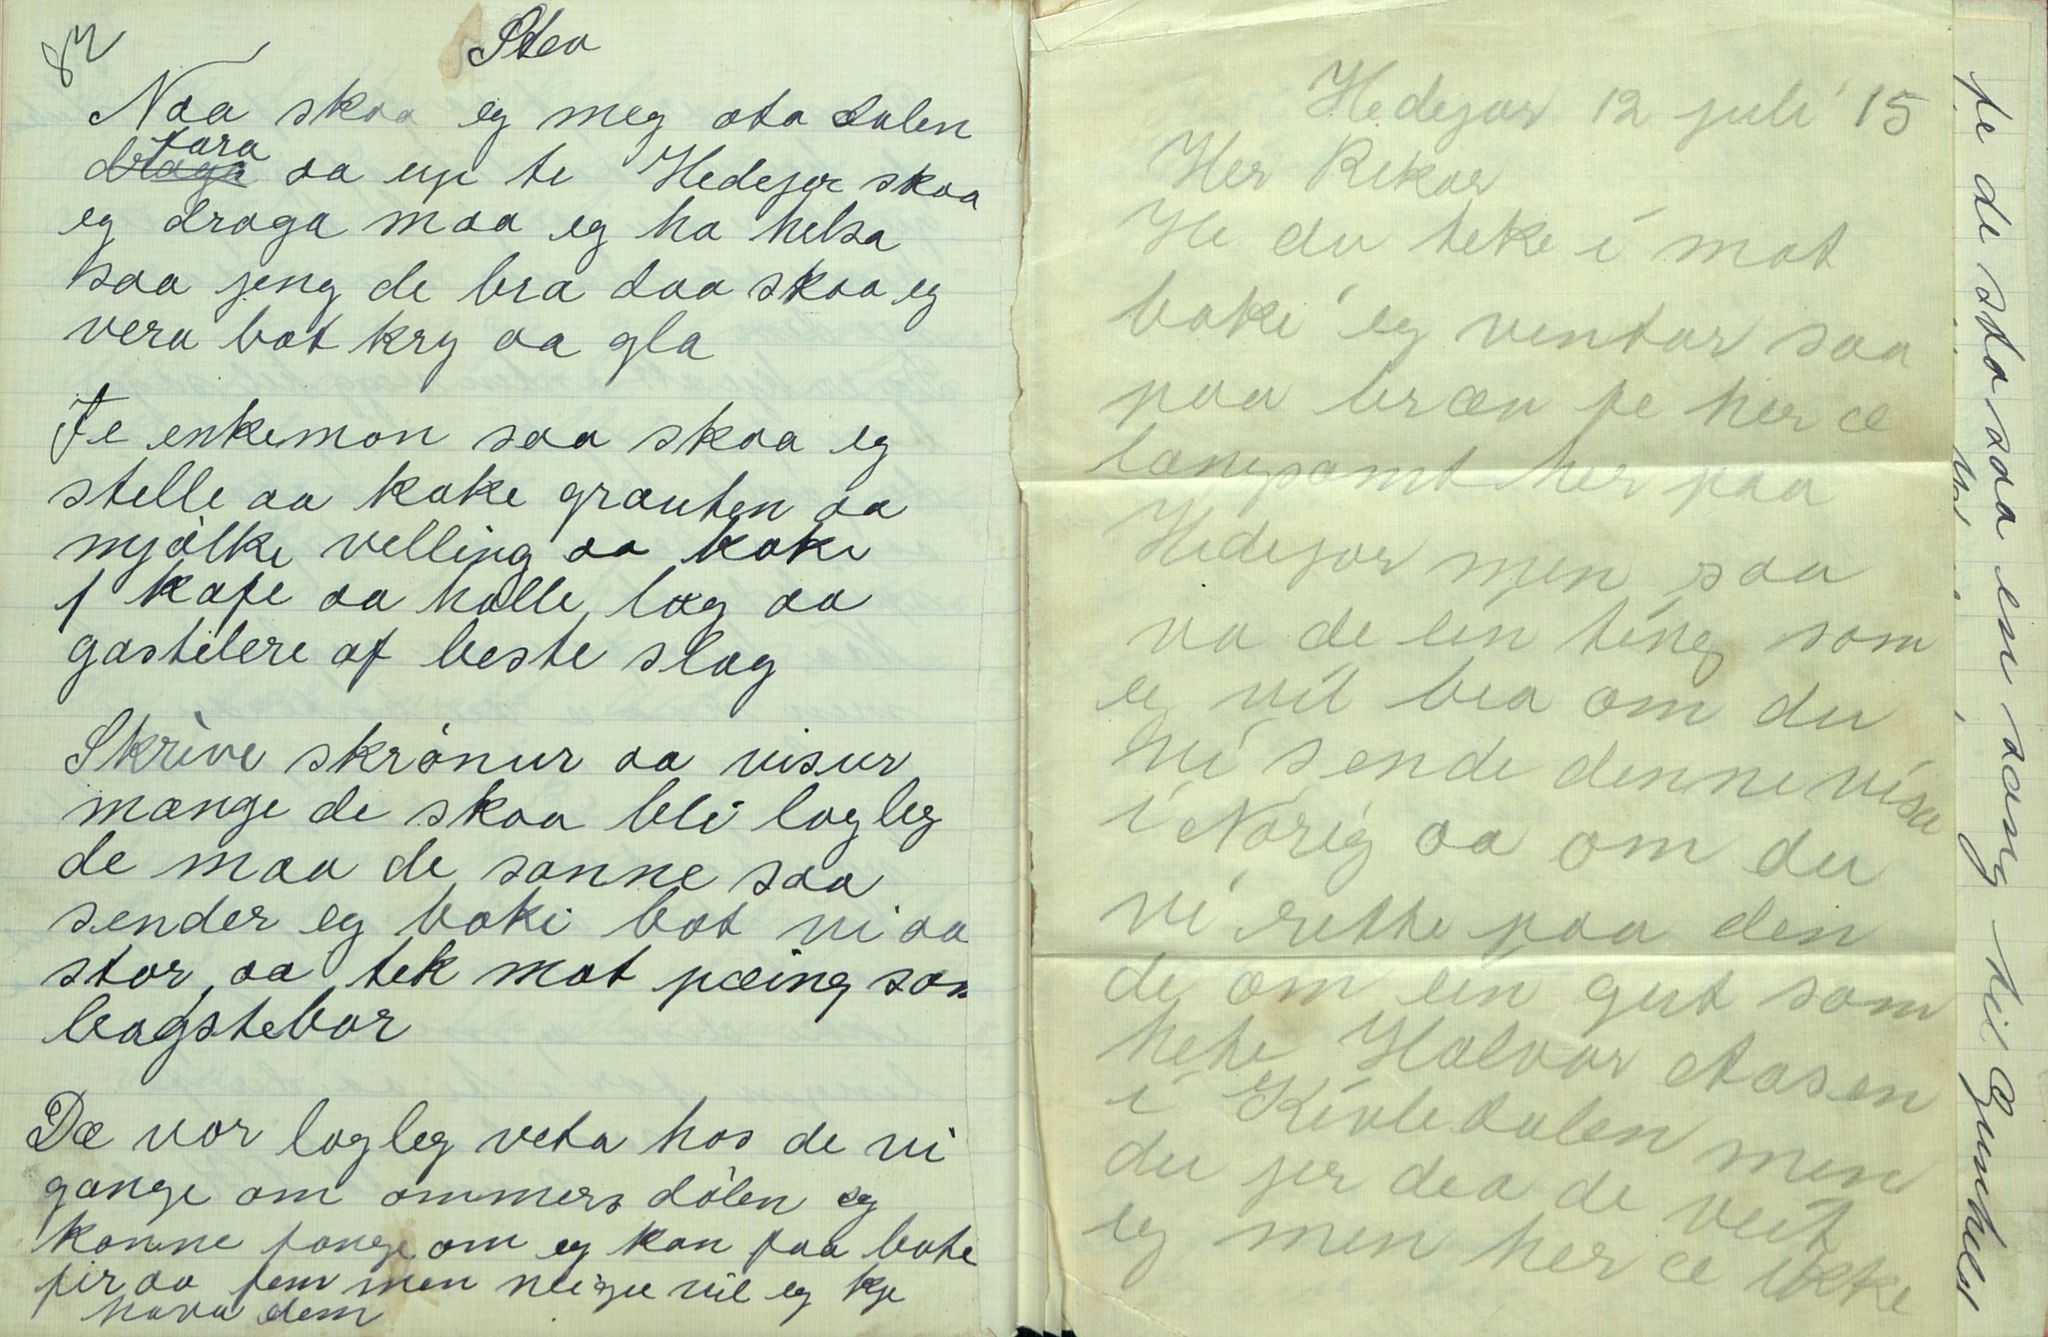 82
Stev
Naa skaa eg meg ota dalen
fara
draga aa up te Hedejor skaa
eg draga maa eg ha helsa
saa jeng de bra daa skaa eg
vera bot kry aa gla
Fe enkemon saa skaa eg
stelle aa koke grauten aa
mjølke velling aa koke
kafe aa halle lag aa
gastebere af beste slag
Skrive skrønur aa visur
mange de skaa bli lagleg
de maa de sanne saa
sender eg boki bot vi aa
stor, aa tek mot pæing som
bagstebor
Dæ vor lagleg veta hos de vi
gange om ommers dølen eg
konne fange om eg kan faa bate
fir aa fem men vil eg kje
hava dem
Hedejor 12 juli 15
Her Rikar
He du teke i mot
boki eg ventar saa
paa bræv fe her æ
længsomt her paa
Hedejor men saa
va de ein ting som
eg vil bea om du
vi sende denne visa
i Norig aa om du
vi rette paa den
de om ein gut som
hete Halvor Aasen
i Kivledalen men
du jer dea de veit
eg men her æ ikke
fe de sta aa en sang til Gunhels